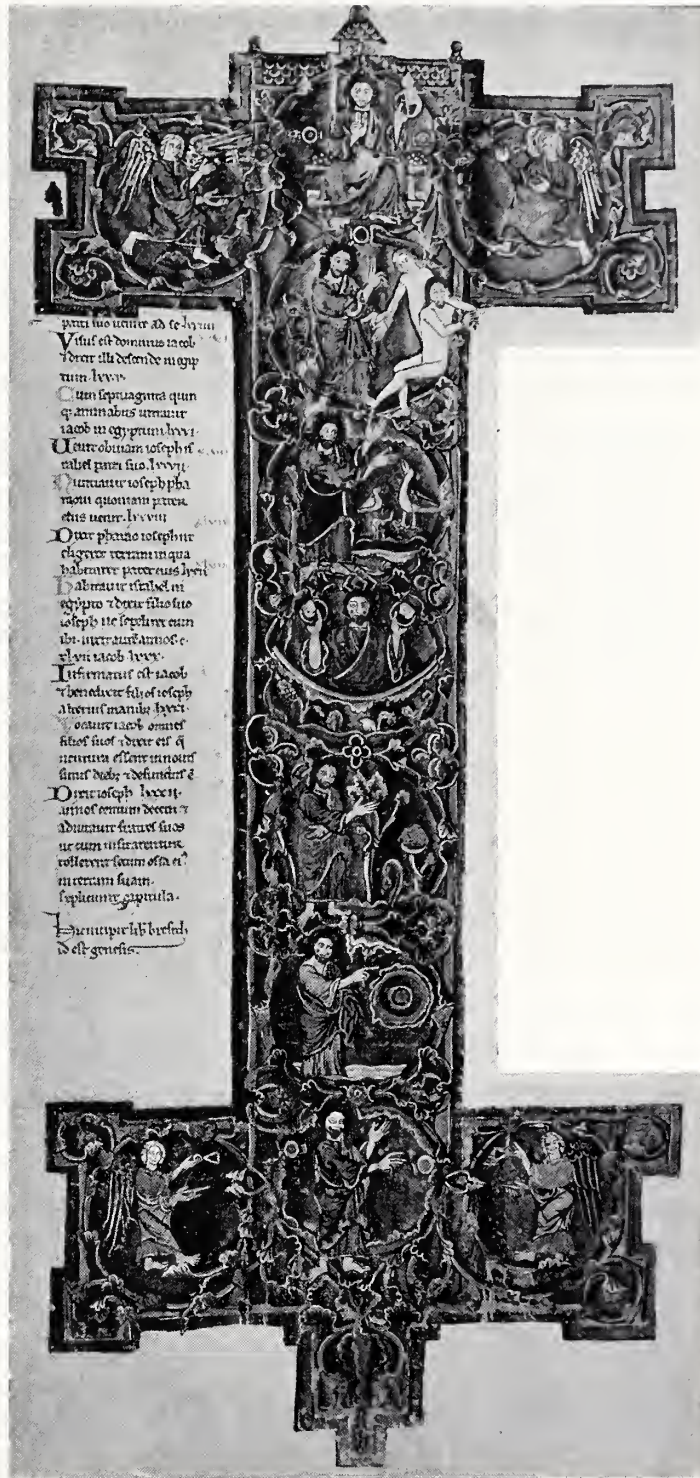 patri suo uenire ad se lxxiiii
Visus est dominus iacob
& dixit illi descende in egip
tum. lxxv.
Cum septuaginta quin
q; animabus intrauit
iacob in egyptum. lxxvi.
Uenit obuiam ioseph is
rahel patri suo. lxxvii.
Nuntiauit ioseph pha
raoni quoniam pater
eius uenit. lxxviii
Dixit pharao ioseph ut
eligeret terram in qua
habitaret pater eius
habitauit israhel in
egypto & dixit filio suo
ioseph ne sepeliret eum
ibi.
xlvii iacob lxxx.
Infirmatus est iacob
& benedixit filios ioseph
manib;
Uocauit iacob omnes
filios suos & dixit eis q
uentura essent in nouis
simis dieb; & defunctus e
Vixit ioseph lxxxii.
annos centum decem &
adiurauit fratres suos
ut cum uisitarentur
tollerent secum ossa ei
in terram suam.
Expliciunt capitula.
Incipit lib bresith
id est genesis.